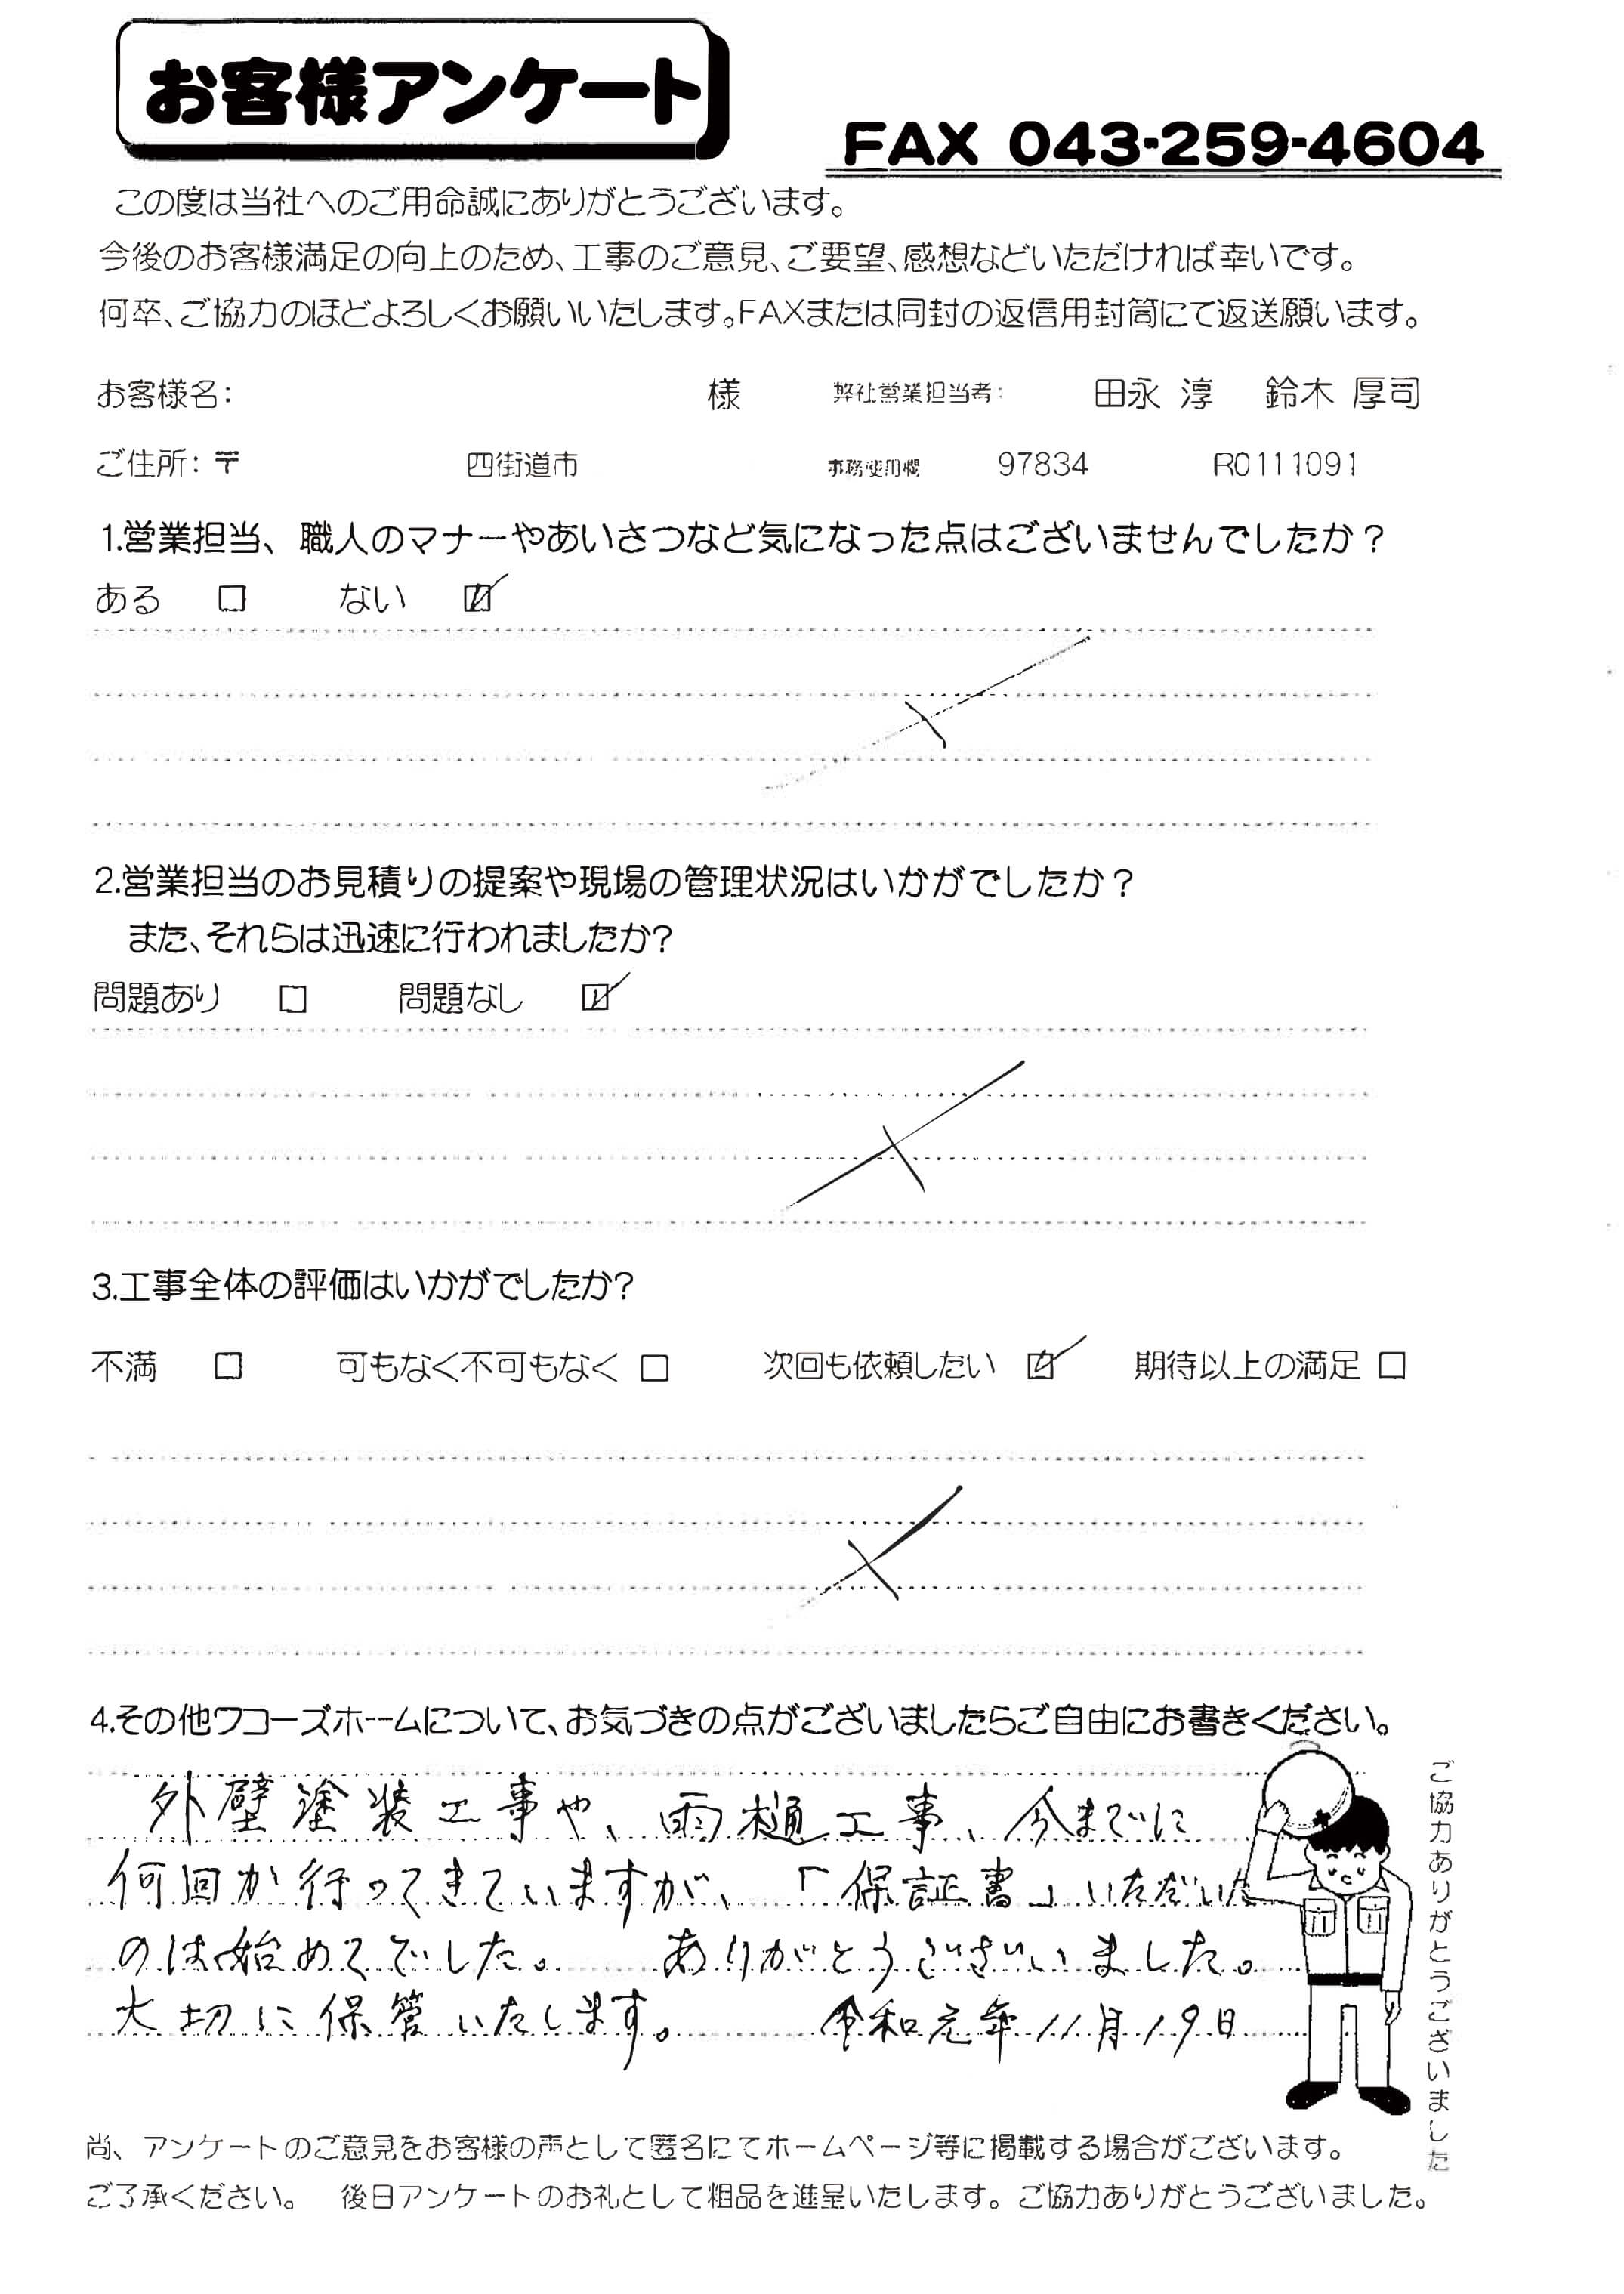 お客様アンケート
FAX 043-259-4604
この度は当社へのご用命誠にありがとうございます。
今後のお客様満足の向上のため、工事のご意見、ご要望、感想などいただければ幸いです。
何卒、ご協力のほどよろしくお願いいたします。FAXまたは同封の返信用封筒にて返送願います。
お客様名： 様 弊社営業担当者： 田永 淳 鈴木 厚司
ご住所：〒 四街道市 事務使用欄 97834 R0111091
1.営業担当、職人のマナーやあいさつなど気になった点はございませんでしたか？
ある □ ない ☑
2.営業担当のお見積りの提案や現場の管理状況はいかがでしたか？
また、それらは迅速に行われましたか？
問題あり □ 問題なし ☑
3.工事全体の評価はいかがでしたか？
不満 □ 可もなく不可もなく □ 次回も依頼したい ☑ 期待以上の満足 □
4.その他ワコーズホームについて、お気づきの点がございましたらご自由にお書きください。
外壁塗装工事や、雨樋工事、今までに
何回か行ってきていますが、「保証書」いただいた
のは始めてでした。 ありがとうございました。
大切に保管いたします。 令和元年11月19日
ご協力ありがとうございました
尚、アンケートのご意見をお客様の声として匿名にてホームページ等に掲載する場合がございます。
ご了承ください。 後日アンケートのお礼として粗品を進呈いたします。ご協力ありがとうございました。